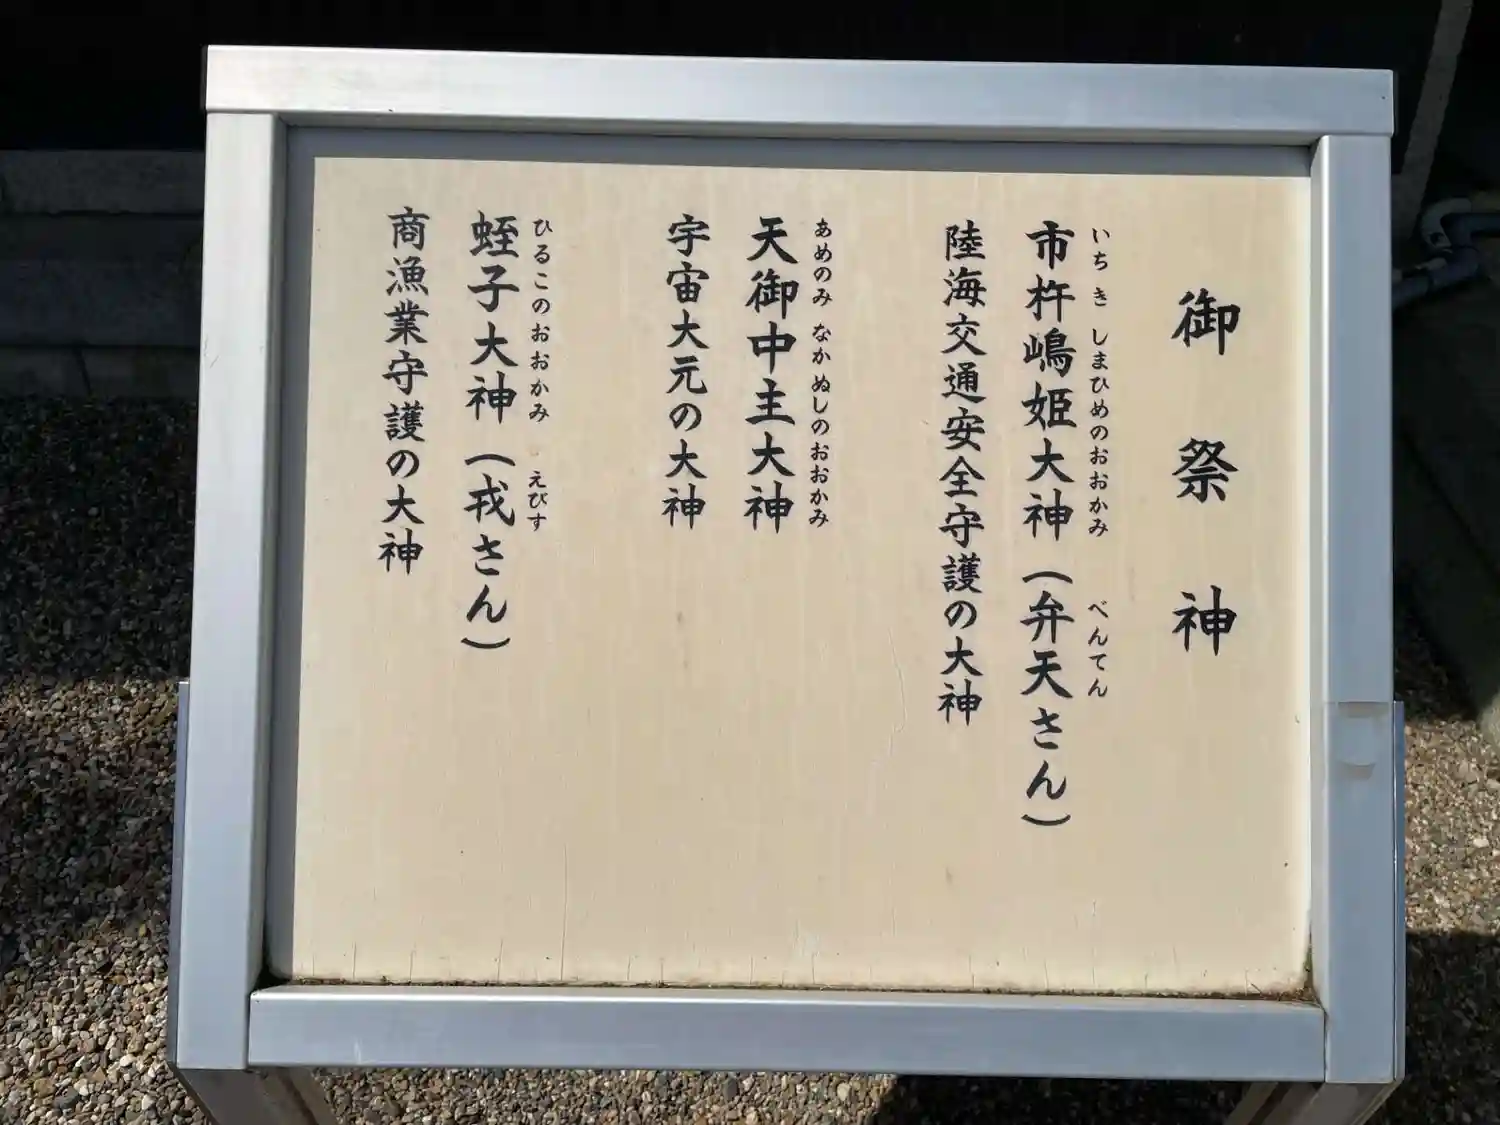 御祭神
いちきしまひめのおおかみ べんてん
市杵嶋姫大神(弁天さん)
陸海交通安全守護の大神
あめのみなかぬしのおおかみ
天御中主大神
宇宙大元の大神
ひるこのおおかみ えびす
蛭子大神(戎さん)
商漁業守護の大神